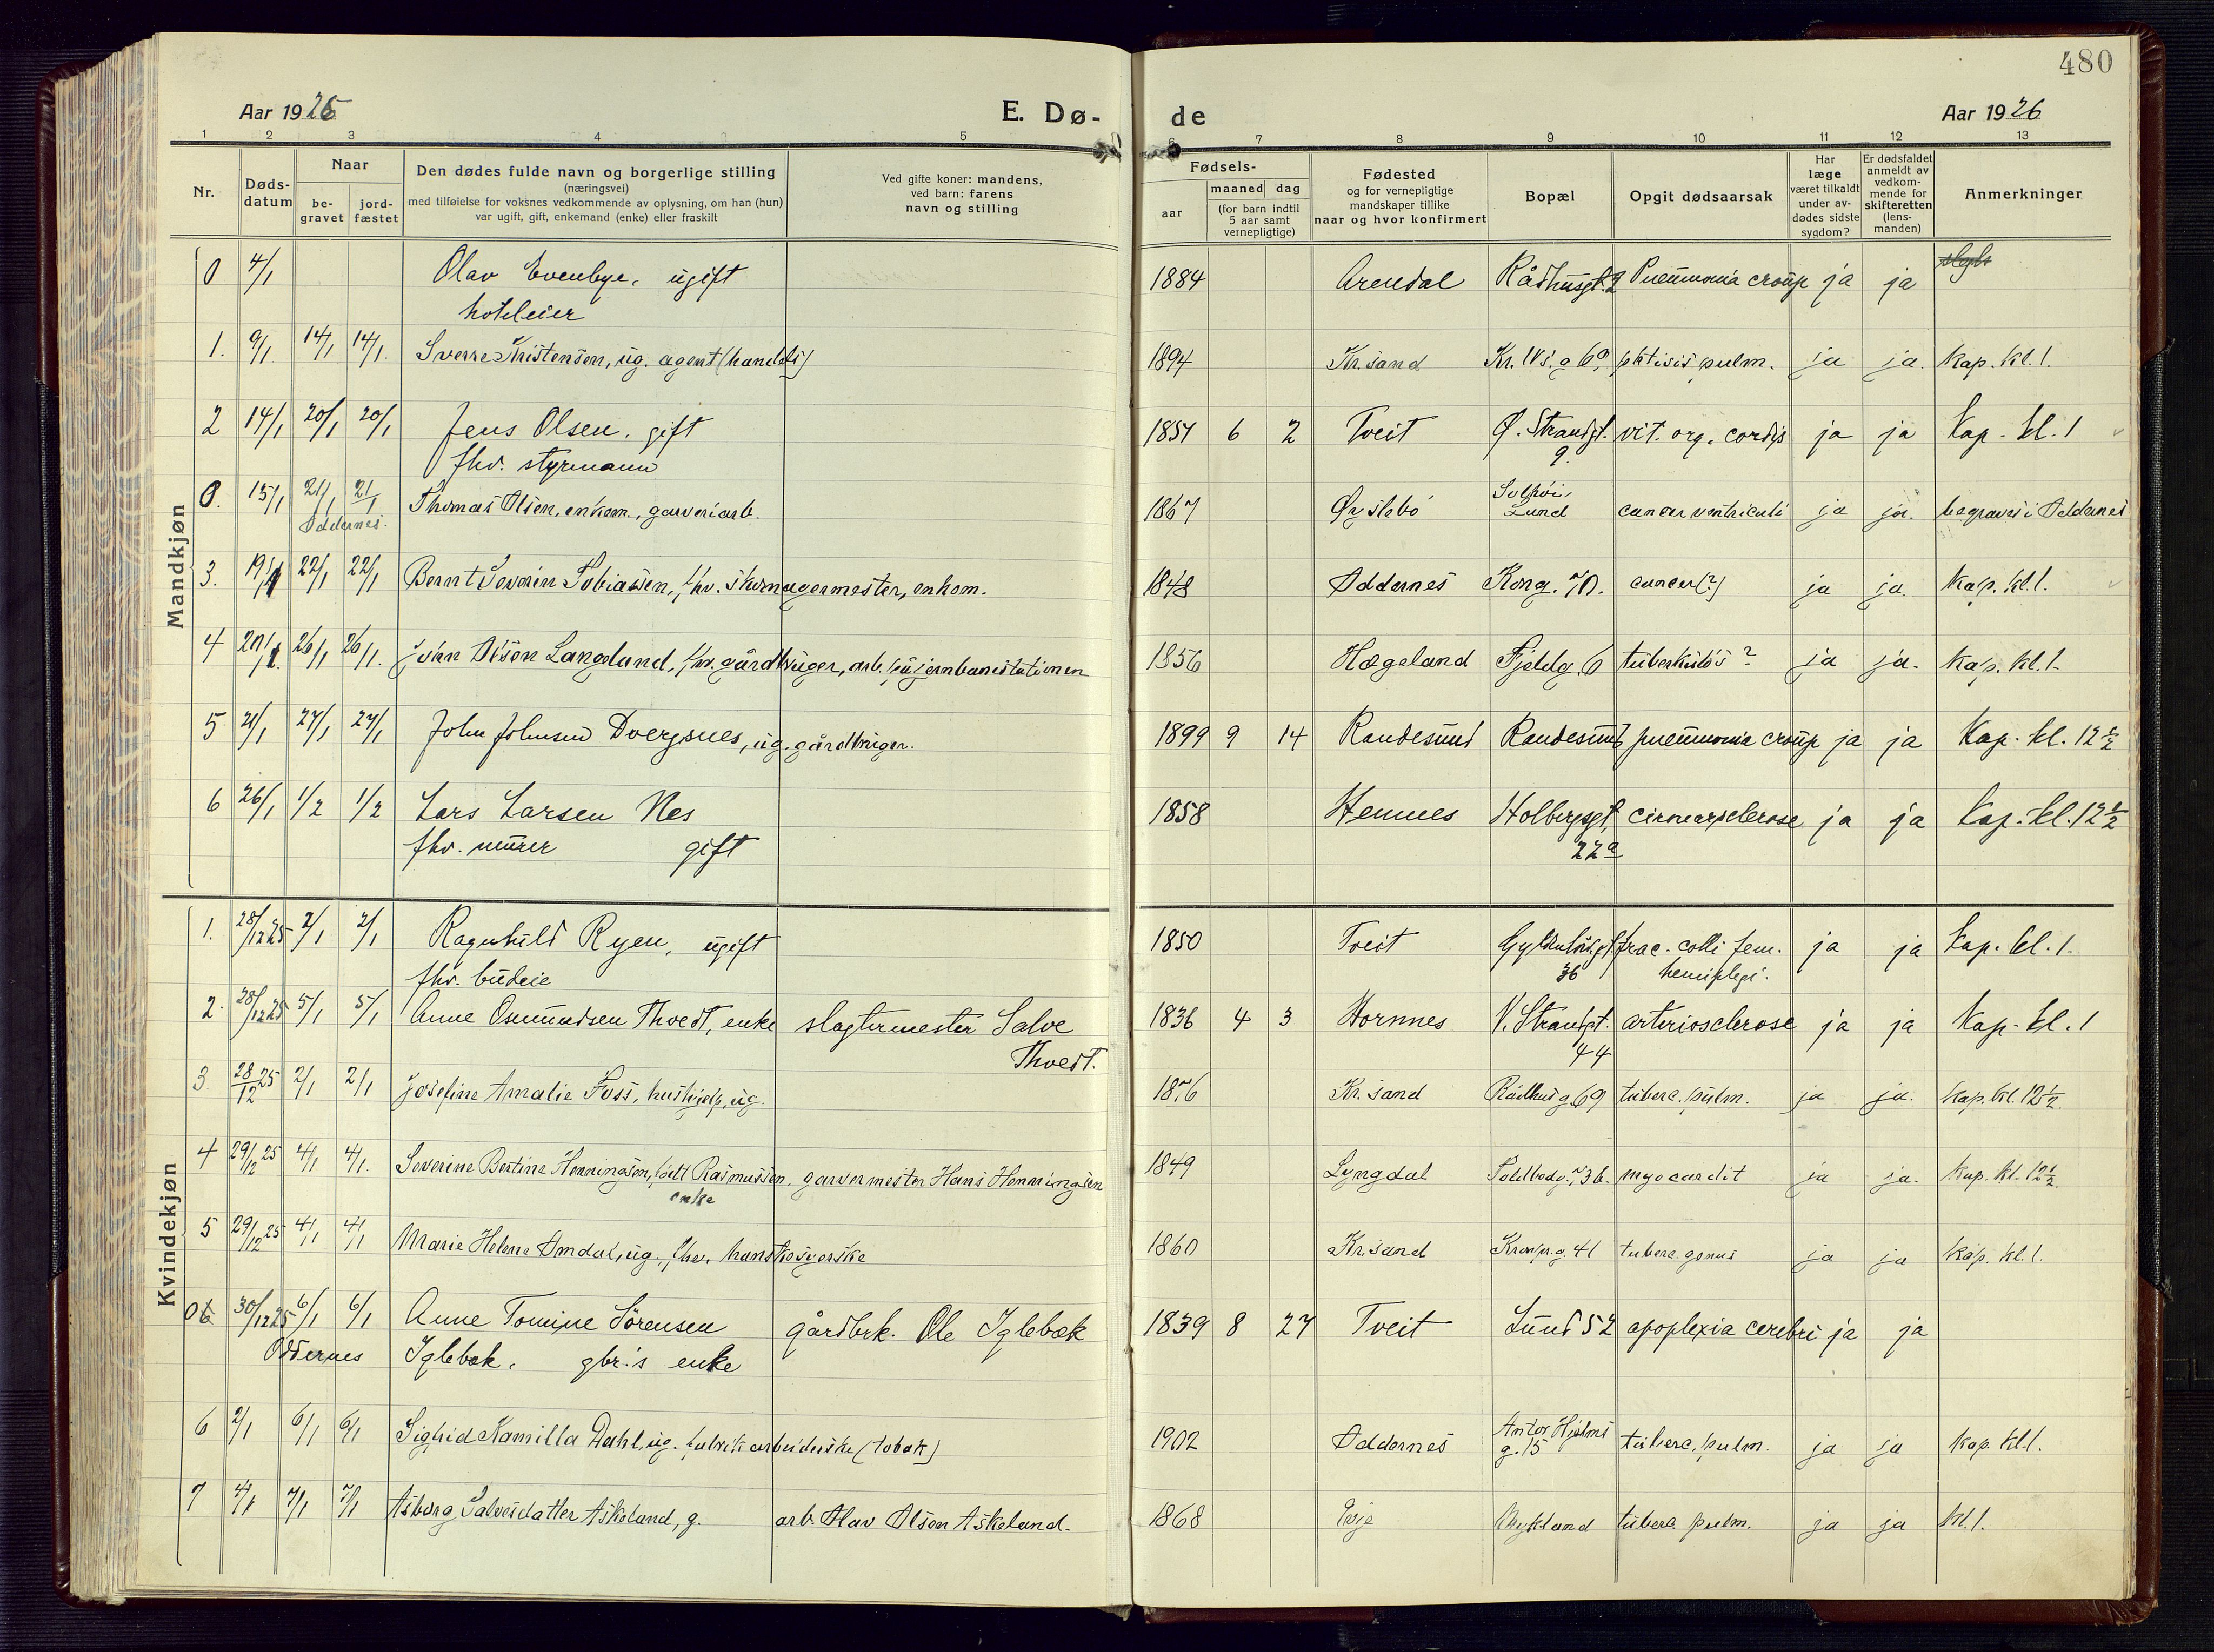 480
Aar 1926 E. Dø- de Aar 1926
1 2 3 4 5 6 7 8 9 10 11 12 13
Nr. Døds-datum Naar begravet jordfæstet
Den dødes fulde navn og borgerlige stilling
(næringsvei)
med tilføielse for voksnes vedkommende av oplysning, om han (hun)
var ugift, gift, enkemand (enke) eller fraskilt
Ved gifte koner: mandens,
ved barn: farens
navn og stilling
Fødsels-
aar maaned dag
(for barn indtil
5 aar samt
vernepligtige)
Fødested
og for vernepligtige
mandskaper tillike
naar og hvor konfirmert
Bopæl
Opgit dødsaarsak
Har
læge
været tilkaldt
under av-
dødes sidste
sygdom?
Er dødsfaldet
anmeldt av
vedkom-
mende for
skifteretten
(lens-
manden)
Anmerkninger
Mandkjøn
0 4/1 Olav Evenbye, ugift 1884 Arendal Rådhusgt. 2 Pneumonia croup ja ja
hoteleier
1. 9/1. 14/1 14/1. Sverre Kristensen, ug. agent (handels) 1894 Kr.sand Kr. IVs. g 6a, phtisis pulm. ja ja. Kap. kl. 1.
2 14/1 20/1 20/1 Jens Olsen, gift 1857 6 2 Tveit Ø. Strandgt. 9. vit. org. cordis ja ja Kap. kl. 1
fhv. styrmann
0. 15/1 21/1 21/1 Thomas Olsen, enkem., garveriarb. 1867 Øyslebø Solhøi, Lund cancer ventriculi ja ja. begraves i Oddernes
Oddernes.
3. 19/1 22/1 22/1 Bernt Severin Tobiassen, fhv. skomagermester, enkem. 1848 Oddernes Kong. 70. cancer (?) ja ja. Kap. kl. 1.
4 20/1. 26/1 26/1. John Olsen Langeland, fhv. gårdbruger, arb. på jernbanestationen 1856 Hægeland Fjeldg. 6 tuberkulös? ja ja. Kap. kl. 1.
5 21/1 27/1 27/1 John Johnsen Dvergsnes, ug. gårdbruger. 1899 9 14 Randesund Randesund pneumonia croup ja ja Kap. kl. 12 1/2
6 26/1 1/2 1/2 Lars Larsen Nes 1858 Hennes Holbergsgt. 22a ja ja Kap. kl. 12 1/2
fhv. murer gift
Kvindekjøn
1. 28/12 25 2/1 2/1 Ragnhild Ryen, ugift 1850 Tveit Gyldenløvesgt. 36 frac. colli fem. hemiplegi. ja ja Kap. kl. 1.
fhv. budeie
2. 28/12 25 5/1 5/1 Anne Osmundsen Thvedt, enke slagtermester Salve Thvedt. 1836 4 3 Hornnes V. Strandgt. 44 arteriosclerose ja ja Kap. kl. 1
3 28/12 25 2/1 2/1 Josefine Amalie Foss, hushjelp, ug. 1876 Kr. sand Rådhusg. 69 tuberc. pulm. ja ja. Kap. kl. 12 1/2.
4 29/12 25 4/1 4/1. Severine Bertine Henningsen, født Rasmussen, garvermester Hans Henningsen 1849 Lyngdal Toldbodg. 36. myocardit ja ja. Kap. kl. 12 1/2.
enke
5 29/12 25 4/1 4/1 Marie Helene Omdal, ug., fhv. hanskesyerske 1860 Kr.sand Kronpr.g. 41 tuberc. genus ja ja Kap. kl. 1.
06 30/12 25 6/1 6/1 Anne Tomine Sörensen gårdbrk. Ole Iglebæk 1839 8 27 Tveit Lund 52 apoplexia cerebri ja ja
Oddernes Iglebæk. gbr.'s enke
6 2/1 6/1 6/1 Sigrid Kamilla Dahl, ug. fabrikarbeiderske (tobak) 1902 Oddernes Anton Hjelms g. 15 tuberc. pulm. ja ja Kap. kl. 1.
7 4/1 7/1 7/1 Asborg Salvesdatter Askeland, g. arb. Olav Olsen Askeland. 1868 Evje Mykland tuberc. pulm. ja ja kl. 1.